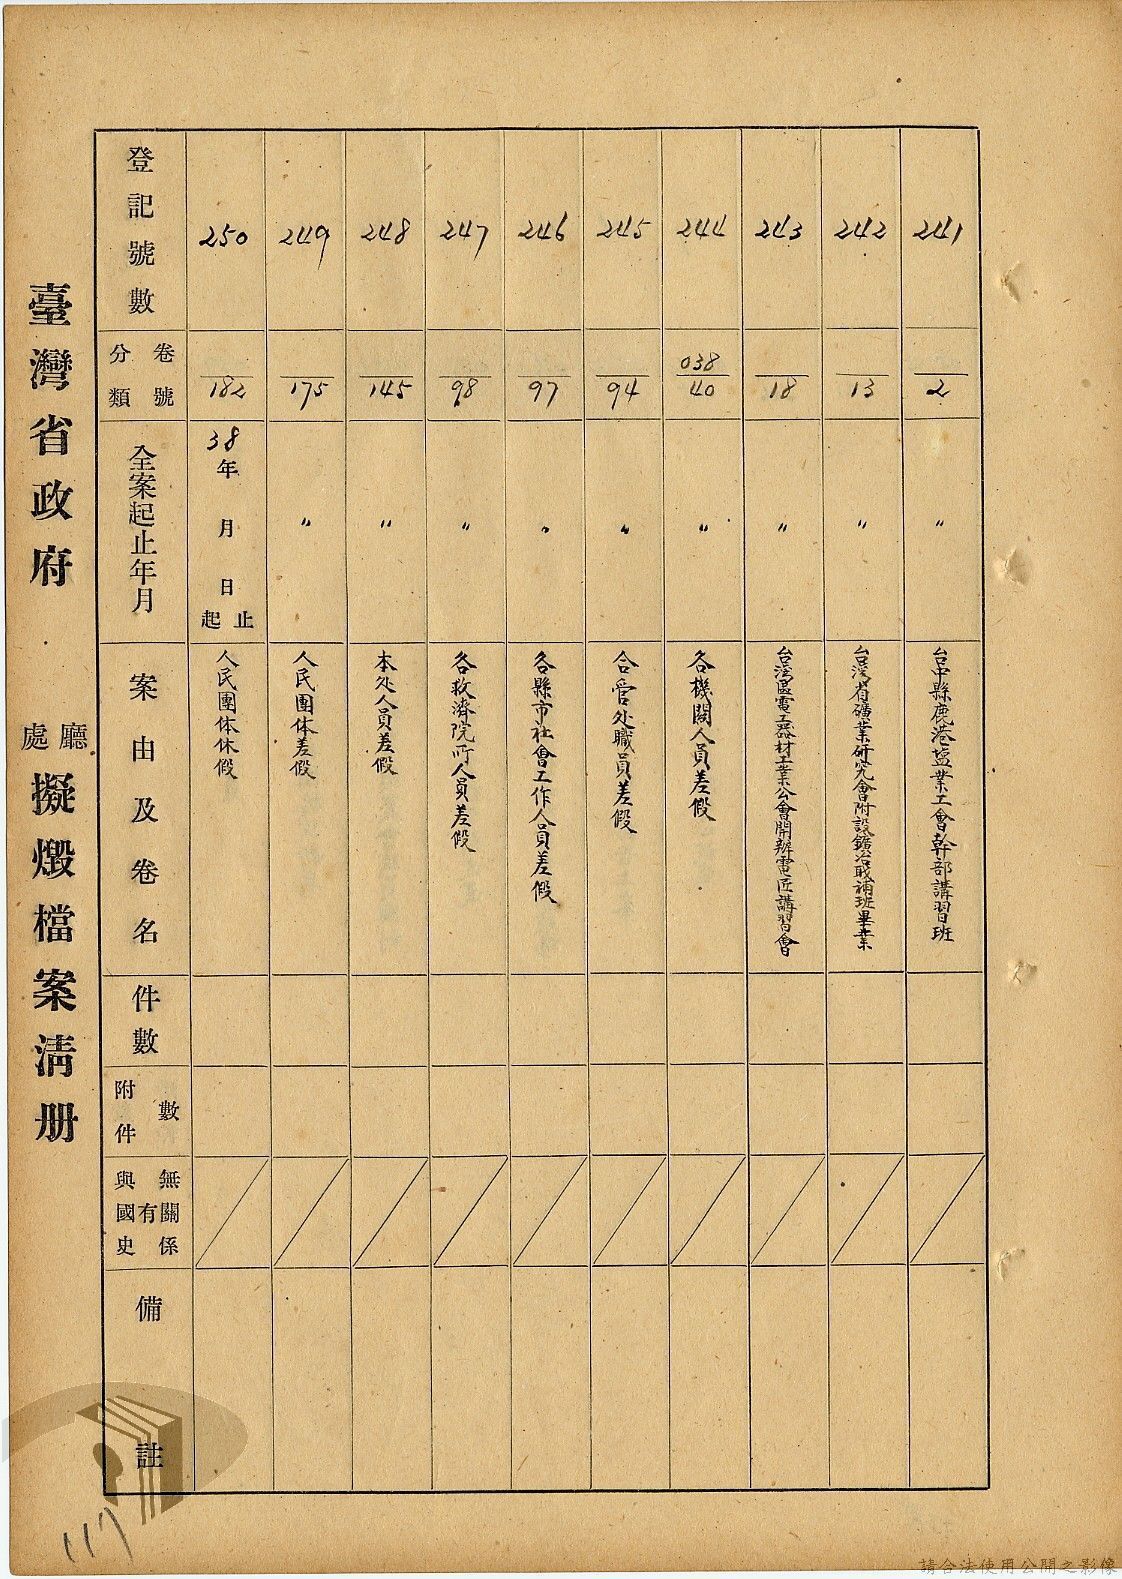 臺灣省政府　廳處擬燬檔案清册
登記號數
分類
卷號
全案起止年月
案由及卷名
件數
附件數
與國史有無關係
備註
250
182
38年　月　日起止
人民團体休假
249
175
〃
人民團体差假
248
145
〃
本处人員差假
247
98
〃
各救濟院所人員差假
246
97
〃
各縣市社會工作人員差假
245
94
〃
合管处職員差假
244
038
40
〃
各機関人員差假
243
18
〃
台湾區電工器材工業公會開辦電匠講習會
242
13
〃
台湾省礦業研究會附設鑛冶职補班畢業
241
2
〃
台中縣鹿港塩業工會幹部講習班
117
請合法使用公開之影像